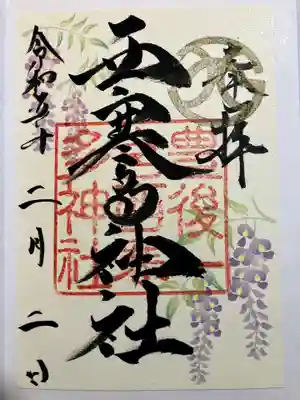 奉拝
豊後一
宮西寒
多神社
西寒多神社
令和五年二月二日